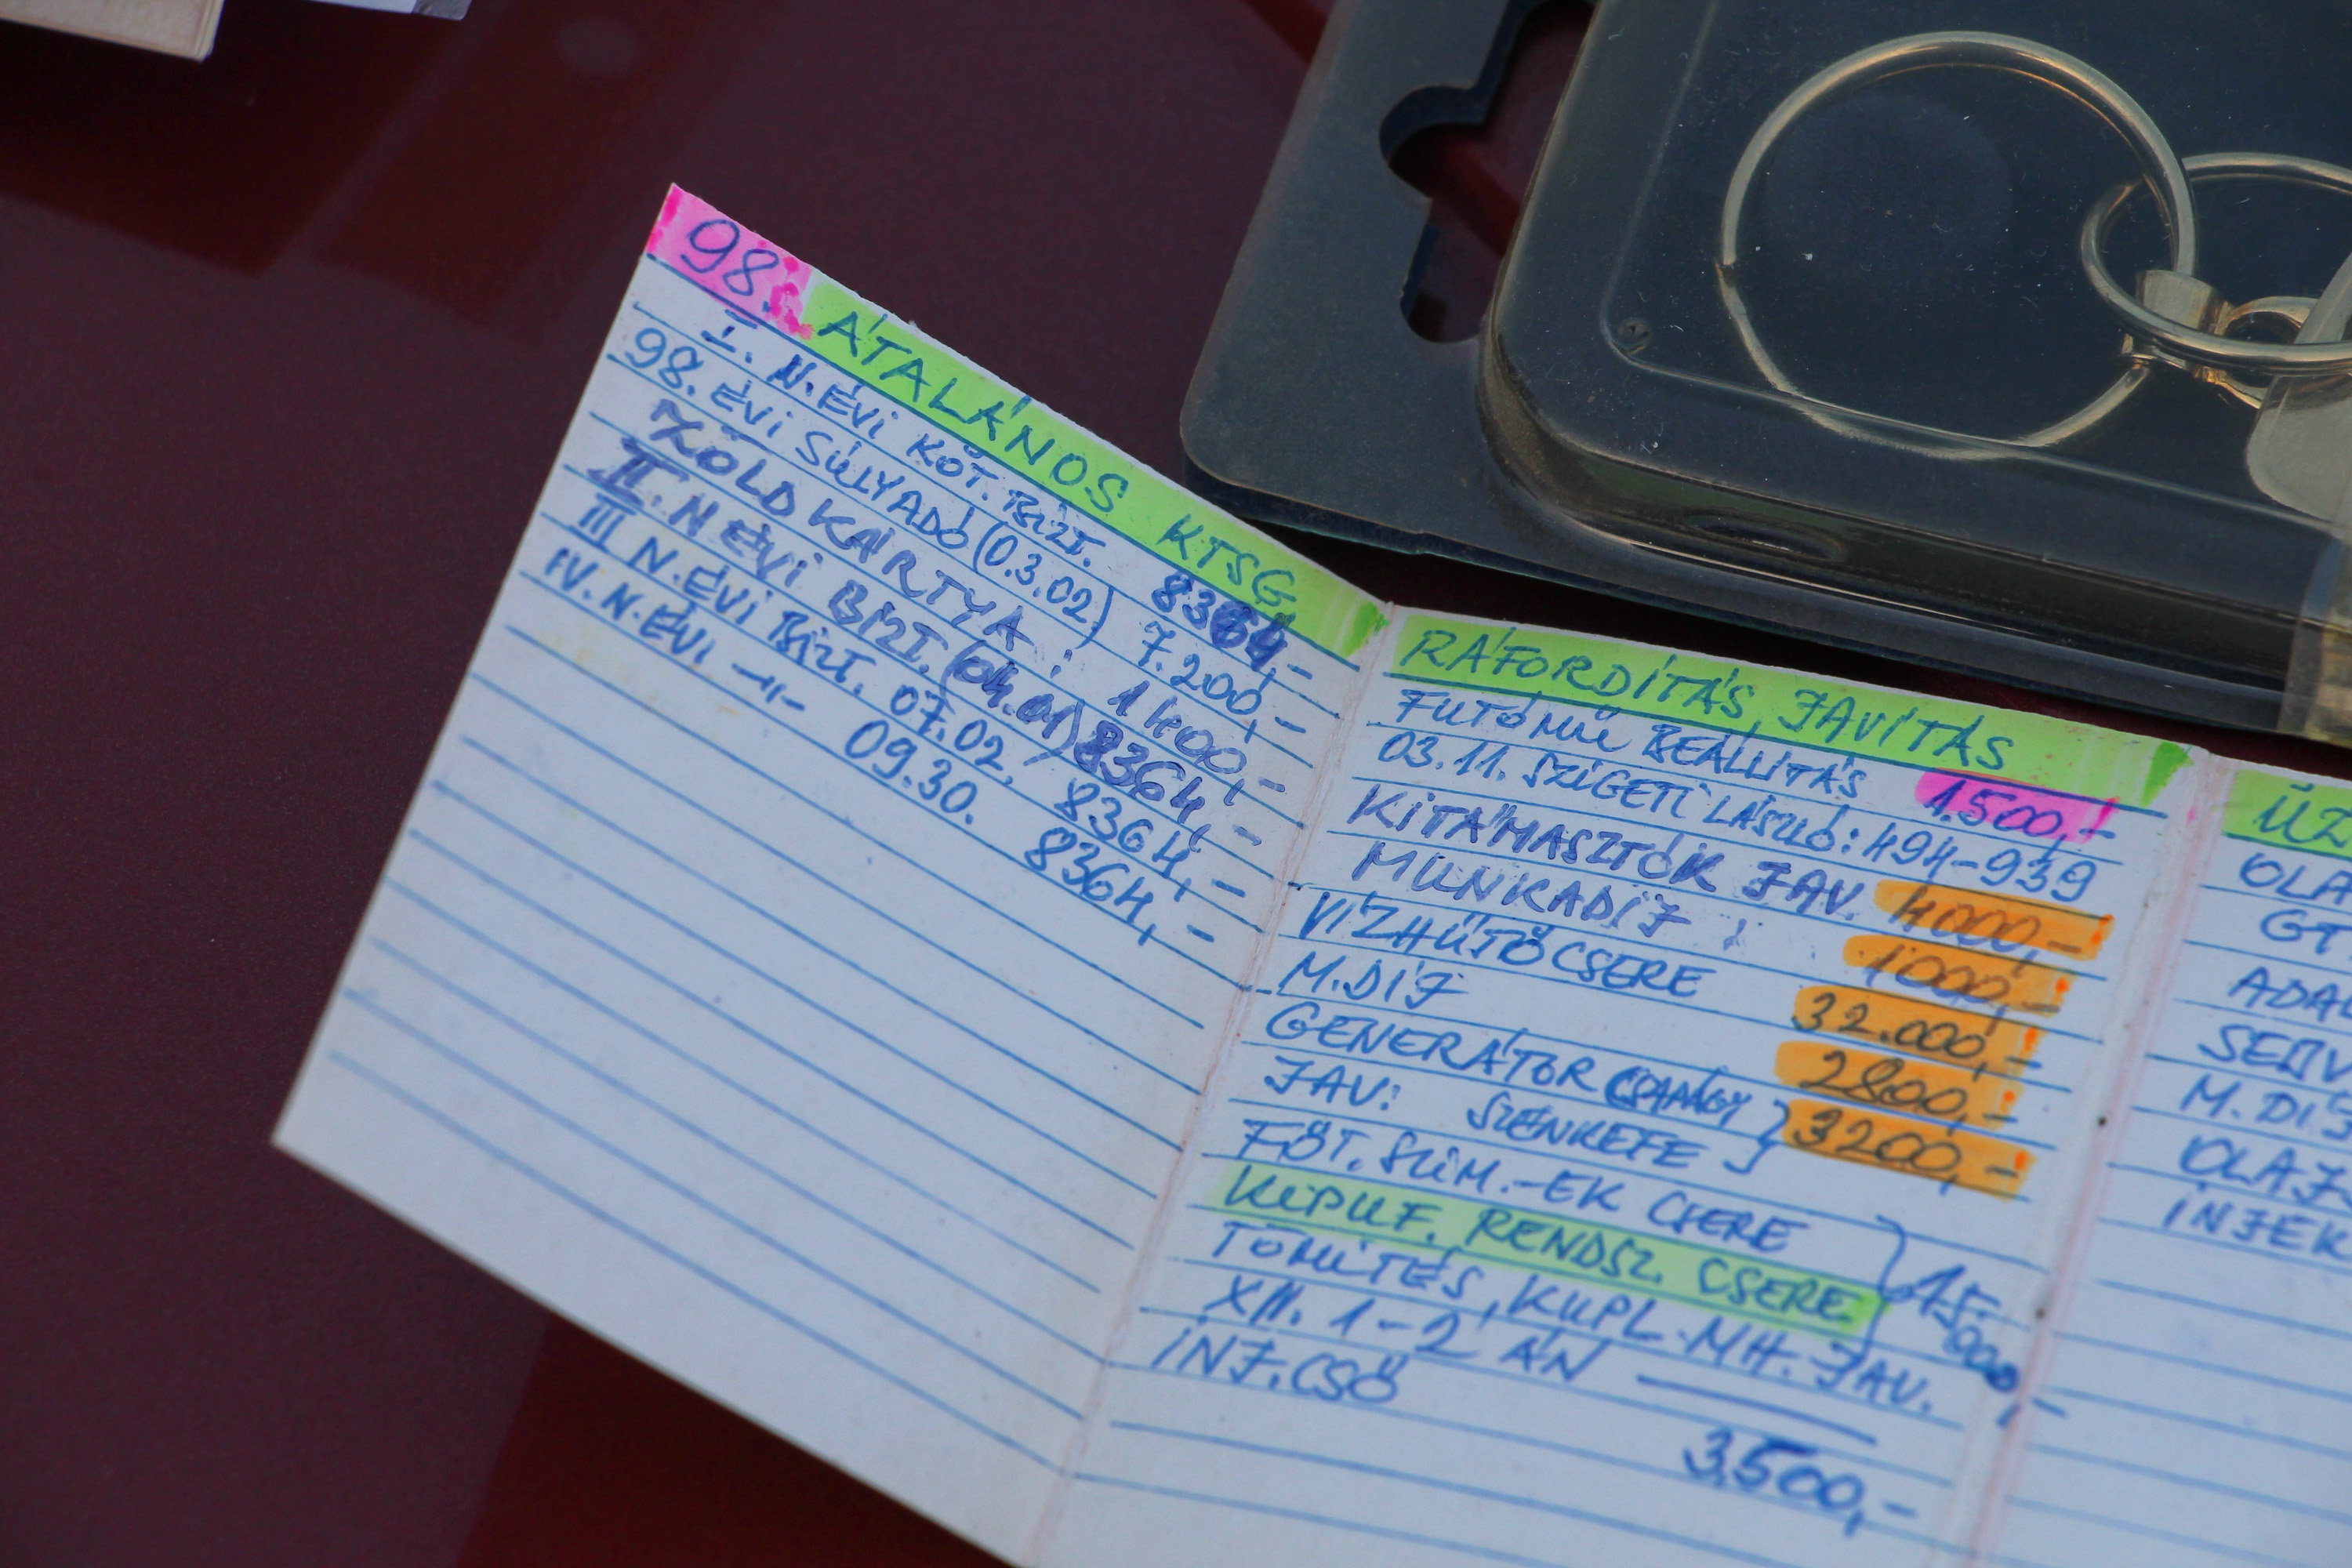 98.
ÁTALÁNOS KTSG.
I. N.ÉVI KÖT. BIZT. 8364,-
98. ÉVI SÚLYADÓ (0.3.02) 7.200,-
ZÖLDKÁRTYA: 1400,-
II. N ÉVI BIZT. (04.01) 8364,-
III N.ÉVI BIZT. 07.02. 8364,-
IV. N.ÉVI -"- 09.30. 8364,-
RÁFORDÍTÁS, JAVÍTÁS
FUTÓMŰ BEÁLLITÁS 1.500,-
03.11. SZIGETI LÁSZLÓ: 494-939
KITÁMASZTÓK JAV. 4000,-
MUNKADÍJ: 1000,-
VÍZHŰTŐ CSERE 32.000,-
M.DÍJ 2800,-
GENERÁTOR CSAPÁGY
JAV: SZÉNKEFE } 3200,-
FŐT. SZIM.-EK CSERE
KIPUF. RENDSZ. CSERE } 15.000,-
TÖMITÉS, KUPL. MH. JAV.
XII. 1-2 ÁN
INJ. CSŐ 3.500,-
ÜZ
OLA
GT
ADAL
SERV
M. DÍJ
OLAJ
INJEK